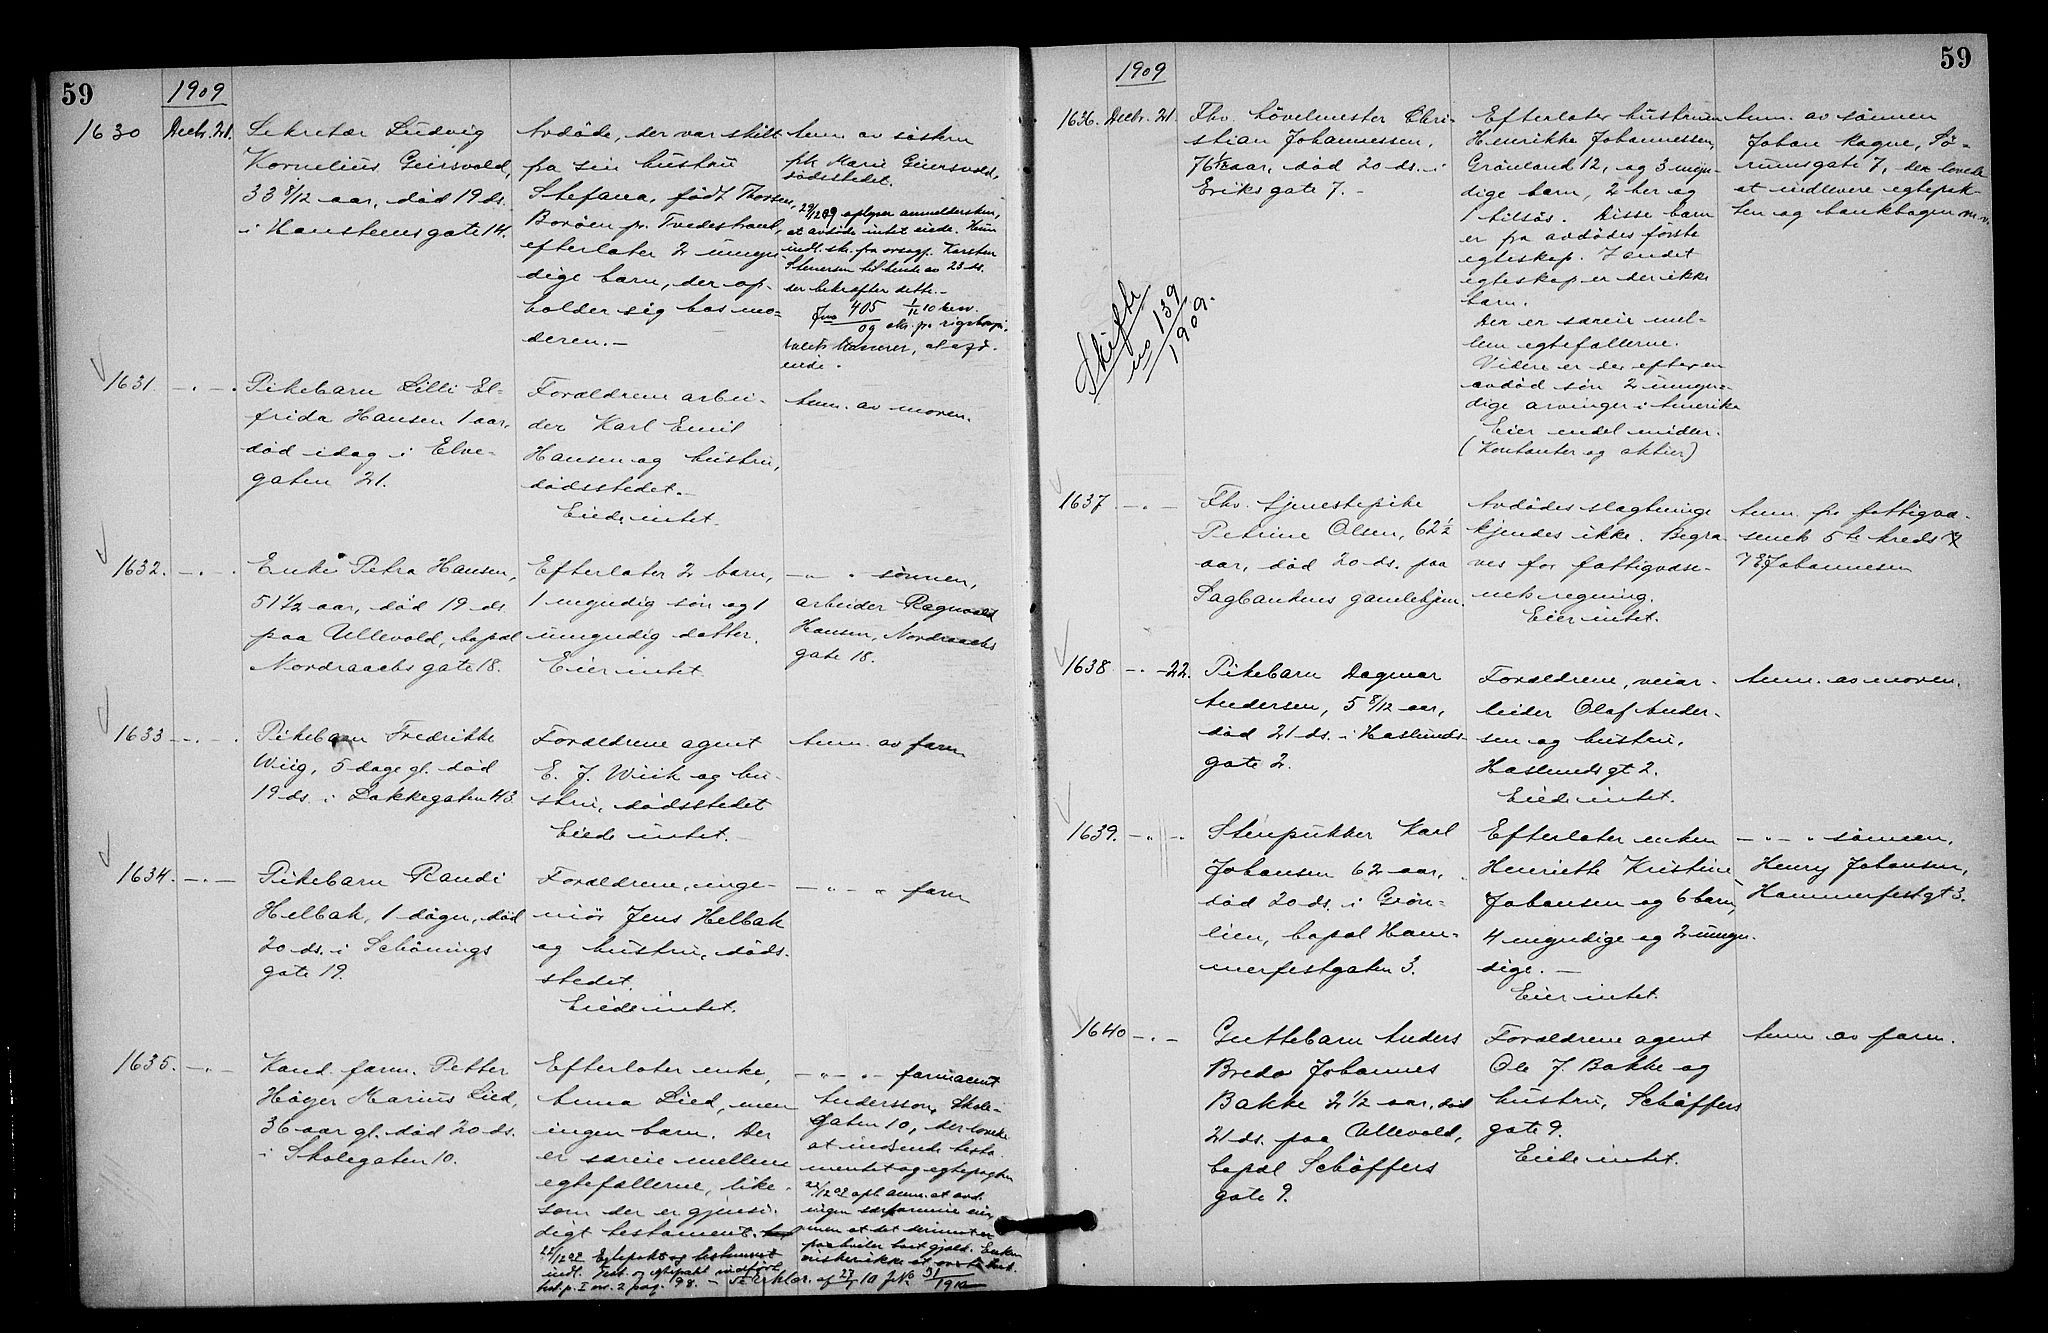 59
1909
1630 Decbr. 21. Sekretær Ludvig
Kornelius Geirsvold,
33 8/12 aar, død 19 ds.
i Hansteensgate 14.
Avdøde, der var skilt
fra sin hustru
Stefana, født Thorsen,
Borøen pr. Tvedestrand,
efterlater 2 umyn-
dige barn, der op-
holder sig hos mo-
deren. –
Anm. av søsteren
frk Marie Geiersvold,
dødsstedet.
29/12 09 oplyser anmeldersken,
at avdøde intet eiede. Hun
indl. skr. fra orsagf. Karsten
Stenersen til hende av 23 ds.
der bekræfter dette. –
Jno 405/09
kasserer, at afd.
eiede.
1631. – . – . Pikebarn Lilli El-
frida Hansen 1 aar,
død idag i Elve-
gaten 21.
Forældrene arbei-
der Karl Emil
Hansen og hustru,
dødsstedet. –
Eiede intet.
Anm. av moren.
1632. – . – . Enke Petra Hansen,
51 1/2 aar, død 19 ds
paa Ullevold, bopæl
Nordraachs gate 18.
Efterlater 2 barn,
1 myndig søn og 1
umyndig datter.
Eier intet.
– " – sønnen,
arbeider Ragnvald
Hansen, Nordraachs
gate 18.
1633 – . – . Pikebarn Fredrikke
Wiig, 5 dage gl. død
19 ds. i Lakkegaten 43.
Forældrene agent
E. J. Wiik og hu-
stru, dødsstedet
Eiede intet. –
Anm. av faren
1634. – . – Pikebarn Randi
Helbak, 1 døgn, død
20 ds. i Schønings
gate 19.
Forældrene, inge-
niør Jens Helbak
og hustru, døds-
stedet.
Eiede intet.
– " – " faren
1635. – . – Kand. farm. Petter
Høyer Marius Lied,
36 aar gl. død 20 ds.
i Skolegaten 10.
Efterlater enke,
Anna Lied, men
ingen barn. Der
er særeie mellem
egtefællerne, like-
som der er gjensi-
digt testament.
22/12 09 Egtepakt og testament
indl. Test. og egtepakt indført
test.p. I no. 2 pag. 98. – Erklær. af 27/1 10 JNo 31/1910
– " – farmaceut
Andersson, Skole-
gaten 10, der lovede
at indsende testa-
mentet og egtepagten
22/12 09 opl. anm. at avd.
ingen særformue eier,
men at det derimot er
gjæld. Enken
59
1909
1636. Decbr. 21. Fhv. høvelmester Chri-
stian Johannessen,
76 1/2 aar, død 20 ds. i
Eriks gate 7. –
Skifte
no 139
1909.
Efterlater hustruen
Henrikke Johannessen,
Grønland 12, og 3 myn-
dige barn, 2 her og
1 tilsjøs. Disse barn
er fra avdødes første
egteskap. I andet
egteskap er der ikke
barn.
Der er særeie mel-
lem egtefællerne.
Videre er der efter en
avdød søn 2 umyn-
dige arvinger i Amerika
Eier endel midler.
(Kontanter og aktier)
Anm. av sønnen
Johan Ragne, Sø-
rumsgate 7, der lovede
at indlevere egtepak-
ten og bankbøgen m.v.
1637. – . – Fhv. tjenestepike
Petrine Olsen, 62 1/2
aar, død 20 ds. paa
Sagbankens gamlehjem.
Avdødes slegtninge
kjendes ikke. Begra-
ves for fattigvæse-
nets regning.
Eier intet.
Anm. fra fattigvæ-
senets 5te kreds
Johannesen
1638. – . – 22. Pikebarn Dagmar
Andersen, 5 8/12 aar,
død 21 ds. i Haslunds-
gate 2.
Forældrene, veiar-
beider Olaf Ander-
sen og hustru,
Haslunds gt 2.
Eiede intet.
Anm. av moren.
1639. – " – Stenpukker Karl
Johansen 62 aar,
død 20 ds. i Grøn-
lien, bopæl Ham-
merfestgaten 3.
Efterlater enken
Henriette Kristine
Johansen og 6 barn,
4 myndige og 2 umyn-
dige. –
Eier intet.
– " – " sønnen,
Henry Johansen,
Hammerfestgt 3.
1640 – . – Guttebarn Anders
Bredo Johannes
Bakke 2 1/2 aar, død
21 ds. paa Ullevold,
bopæl Schøffers
gate 9.
Forældrene agent
Ole J. Bakke og
hustru, Schøffers
gate 9.
Eiede intet.
Anm. av faren.